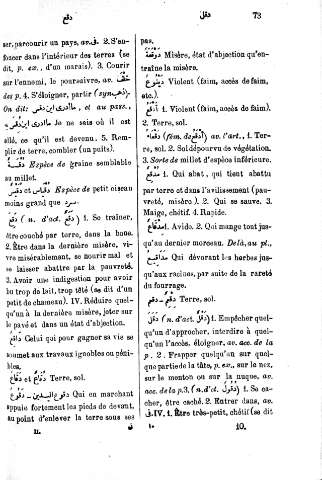 دقع
دقل
73
ser, parcourir un pays, av. فى. 2. S'en-
foncer dans l'intérieur des terres (se
dit, p. ex., d'un marais). 3. Courir
sur l'ennemi, le poursuivre, av.
de p. 4. S'éloigner, partir
On dit: ما ادرى اين دقس, et au pass.,
ما ادرى اين دقس Je ne sais où il est
allé, ce qu'il est devenu. 5. Rem-
pir de terre, combler (un puits).
Espèce de graine semblable
au millet.
Espèce de petit oiseau
moins grand que
دقع (n. d'act. دقع) 1. Se traîner,
être couché par terre, dans la boue.
2. Être dans la dernière misère, vi-
vre misérablement, se nourrir mal et
se laisser abattre par la pauvreté.
3. Avoir une indigestion pour avoir
bu trop de lait, trop tété (se dit d'un
petit de chameau). IV. Réduire quel-
qu'un à la dernière misère, jeter sur
le pavé et dans un état d'abjection.
Celui qui pour gagner sa vie se
soumet aux travaux ignobles ou péni-
bles.
دقاع et دقاع Terre, sol.
Qui en marchant
appuie fortement les pieds de devant,
au point d'enlever la terre sous ses
II.
pas.
Misère, état d'abjection qu'en-
traîne la misère.
Violent (faim, accès de faim,
etc.).
1. Violent (faim, accès de faim).
2. Terre, sol.
دقعاء (fém. de ادقع) av. l'art., 1. Ter-
re, sol. 2. Sol dépourvu de végétation.
3. Sorte de millet d'espèce inférieure.
1. Qui abat, qui tient abattu
par terre et dans l'avilissement (pau-
vreté, misère). 2. Qui se sauve. 3.
Maigre, chétif. 4. Rapide.
مدقاع 1. Avide. 2. Qui mange tout jus-
qu'au dernier morceau. De là, au pl.,
مداقيع Qui dévorant les herbes jus-
qu'aux racines, par suite de la rareté
du fourrage.
Terre, sol.
دقل (n. d'act. دقل) 1. Empêcher quel-
qu'un d'approcher, interdire à quel-
qu'un l'accès, éloigner, av. acc. de la
p. 2. Frapper quelqu'un sur quel-
que partie de la tête, p. ex., sur le nez,
sur le menton ou sur la nuque, av.
acc. de la p. 3. (n. d'act. دقول) 1. Se ca-
cher, être caché. 2. Entrer dans, av.
فى. IV. 1. Être très-petit, chétif (se dit
10.